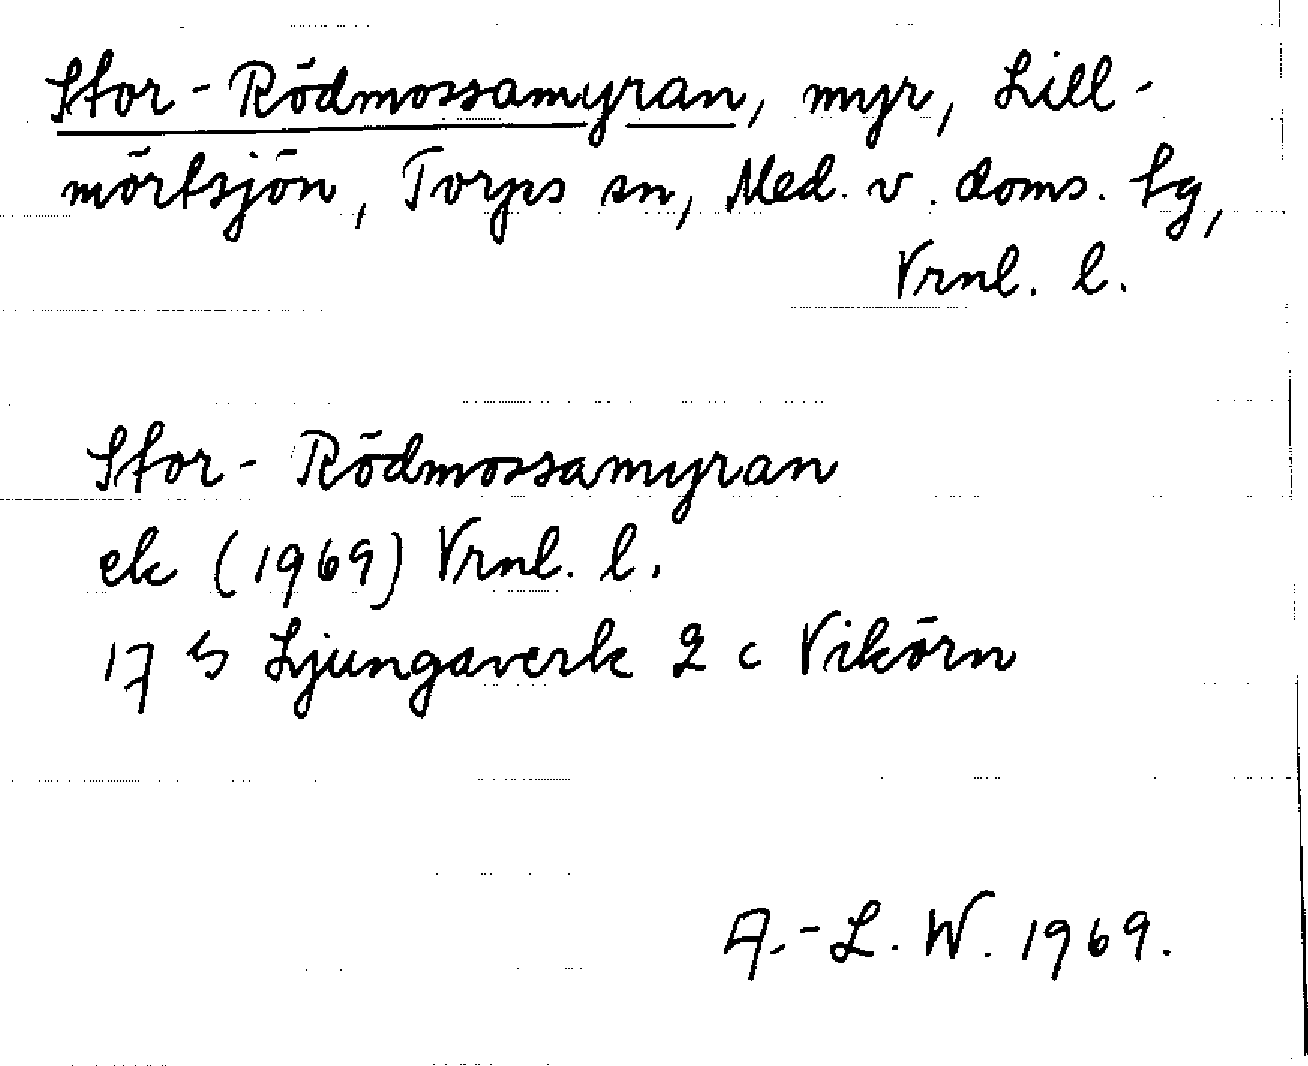 Stor-Rödmossamyran, myr, Lill-
mörtsjön, Torps sn, Med. v. doms. tg,
Vrnl. l.
Stor-Rödmossamyran
ek (1969) Vrnl. l.
17 G Ljungaverk 2 c Vikörn
A.-L. W. 1969.